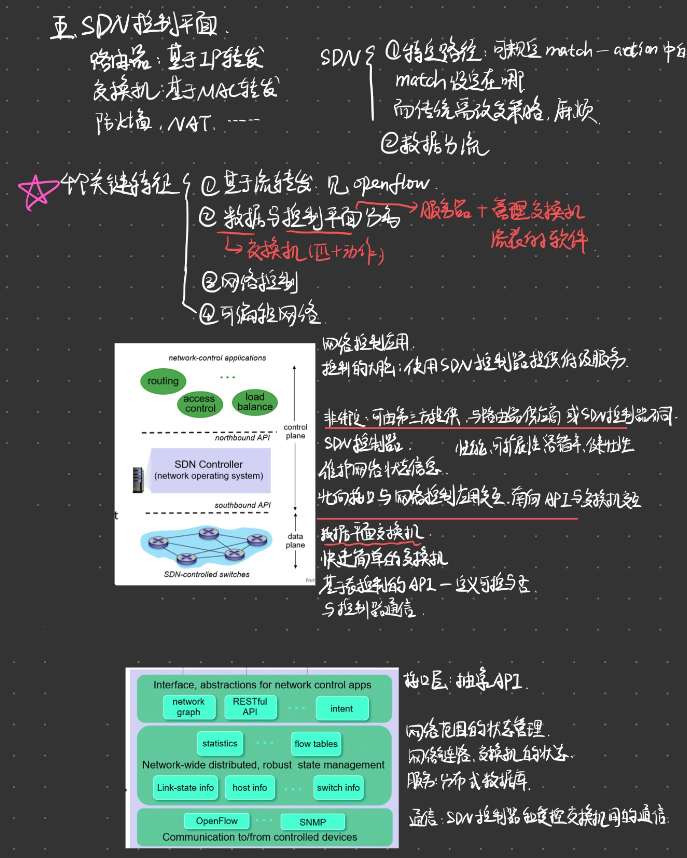 五. SDN控制平面.
路由器:基于IP转发
交换机:基于MAC转发
防火墙,NAT. ......
SDN { ①特定路径:可规定match-action中的
match设定在哪
而传统需改策略,麻烦
②数据分流
4个关键特征 { ①基于流转发.见openflow.
②数据与控制平面分离 → 服务器+管理交换机
流表的软件
↳交换机(匹+动作)
③网络控制
④可编程网络.
network-control applications
routing
...
access control
load balance
control plane
northbound API
SDN Controller
(network operating system)
southbound API
data plane
SDN-controlled switches
t
Net
网络控制应用.
控制的大脑:使用SDN控制器提供的级服务.
非绑定:可由第三方提供,与路由器供应商或SDN控制器不同.
SDN控制器. 性能,可扩展性容错率,健壮性
维护网络状态信息
北向接口与网络控制应用交互.南向API与交换机交互
数据平面交换机
快速简单的交换机
基于表控制的API-定义可控与否
与控制器通信.
Interface, abstractions for network control apps
network graph
RESTful API
...
intent
statistics
...
flow tables
Network-wide distributed, robust state management
Link-state info
host info
...
switch info
OpenFlow
...
SNMP
Communication to/from controlled devices
接口层:抽象API.
网络范围的状态管理.
网络链路,交换机的状态.
服务:分布式数据库.
通信:SDN控制器和受控交换机间的通信.